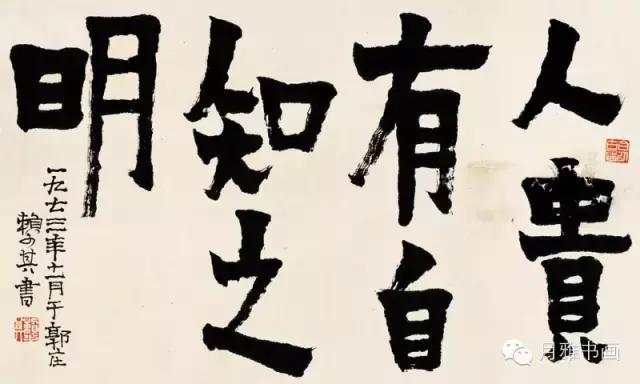 人貴
有自
知之
明
一九七三年十一月于郭庄
賴少其書
月雅书画